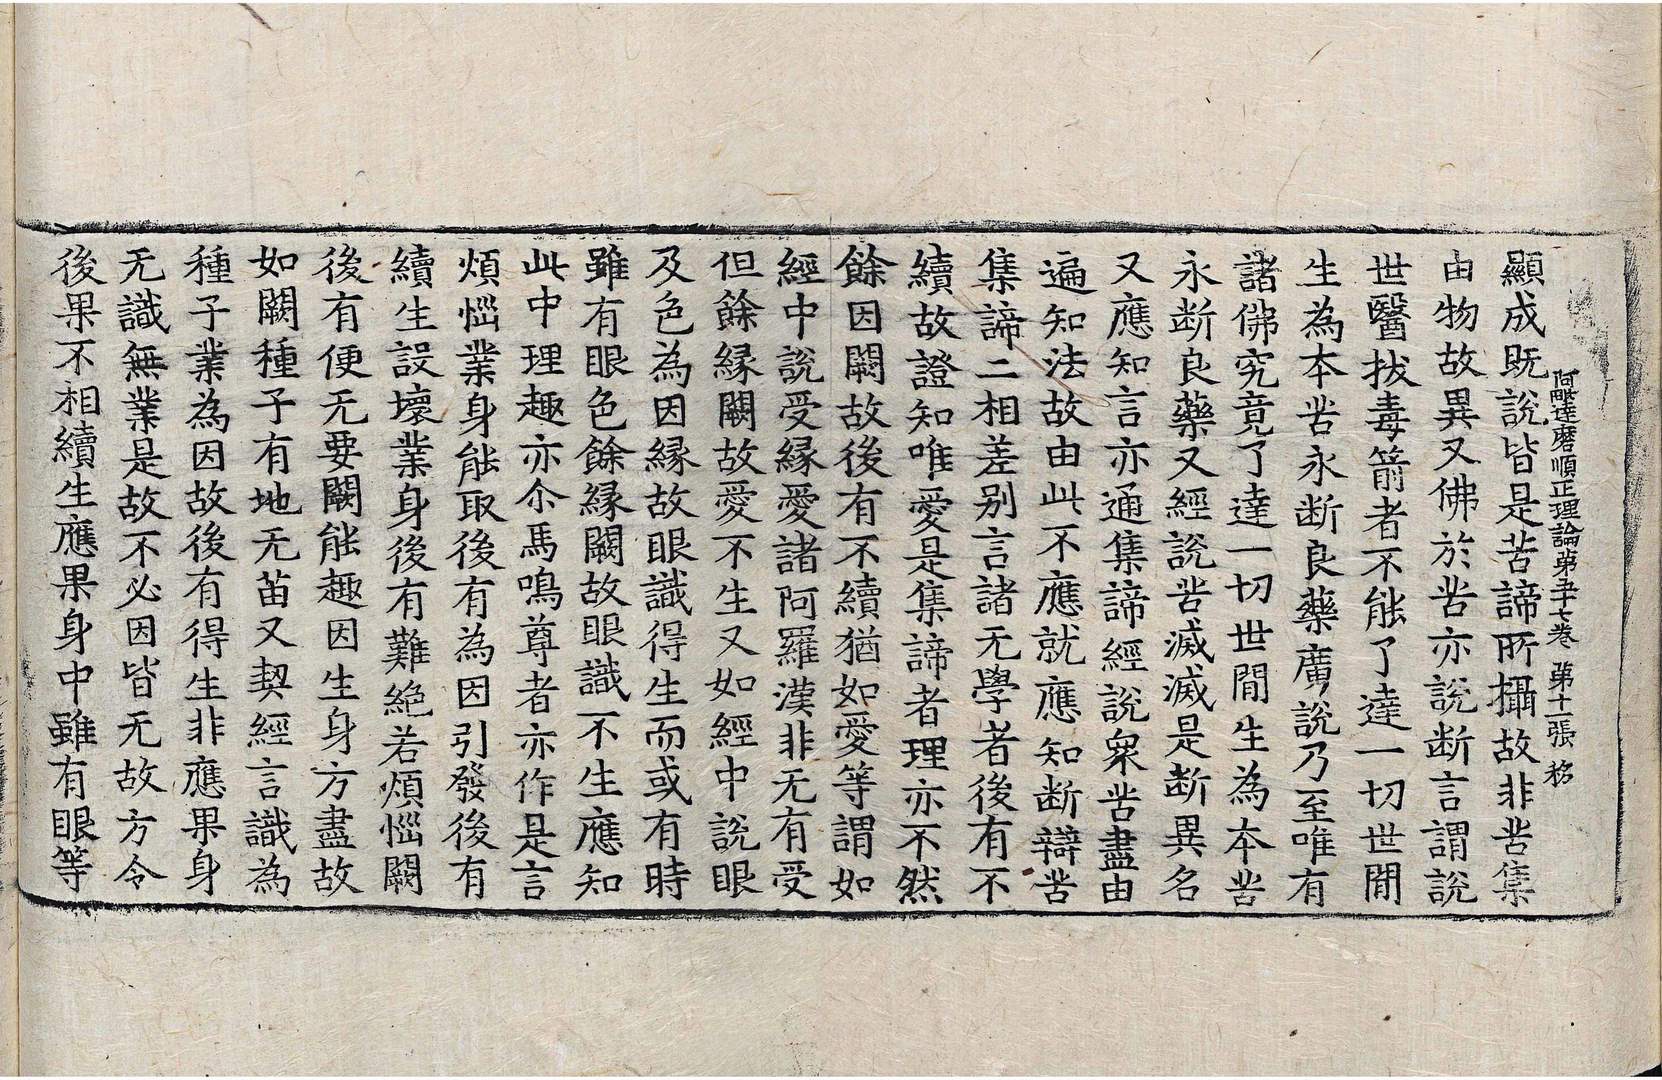 阿毗達磨順正理論第五十七卷 第十一張 移
顯成旣說皆是苦諦所攝故非苦集
由物故異又佛於苦亦說断言謂說
世醫拔毒箭者不能了達一切世間
生為本苦永断良藥廣說乃至唯有
諸佛究竟了達一切世間生為本苦
永断良藥又經說苦滅滅是断異名
又應知言亦通集諦經說衆苦盡由
遍知法故由此不應就應知断辯苦
集諦二相差别言諸无學者後有不
續故證知唯愛是集諦者理亦不然
餘因闕故後有不續猶如愛等謂如
經中說受緣愛諸阿羅漢非无有受
但餘緣闕故愛不生又如經中說眼
及色為因緣故眼識得生而或有時
雖有眼色餘緣闕故眼識不生應知
此中理趣亦尒馬鳴尊者亦作是言
煩惱業身能取後有為因引發後有
續生設壞業身後有難絶若煩惱闕
後有便无要闕能趣因生身方盡故
如闕種子有地无苗又契經言識為
種子業為因故後有得生非應果身
无識無業是故不必因皆无故方令
後果不相續生應果身中雖有眼等